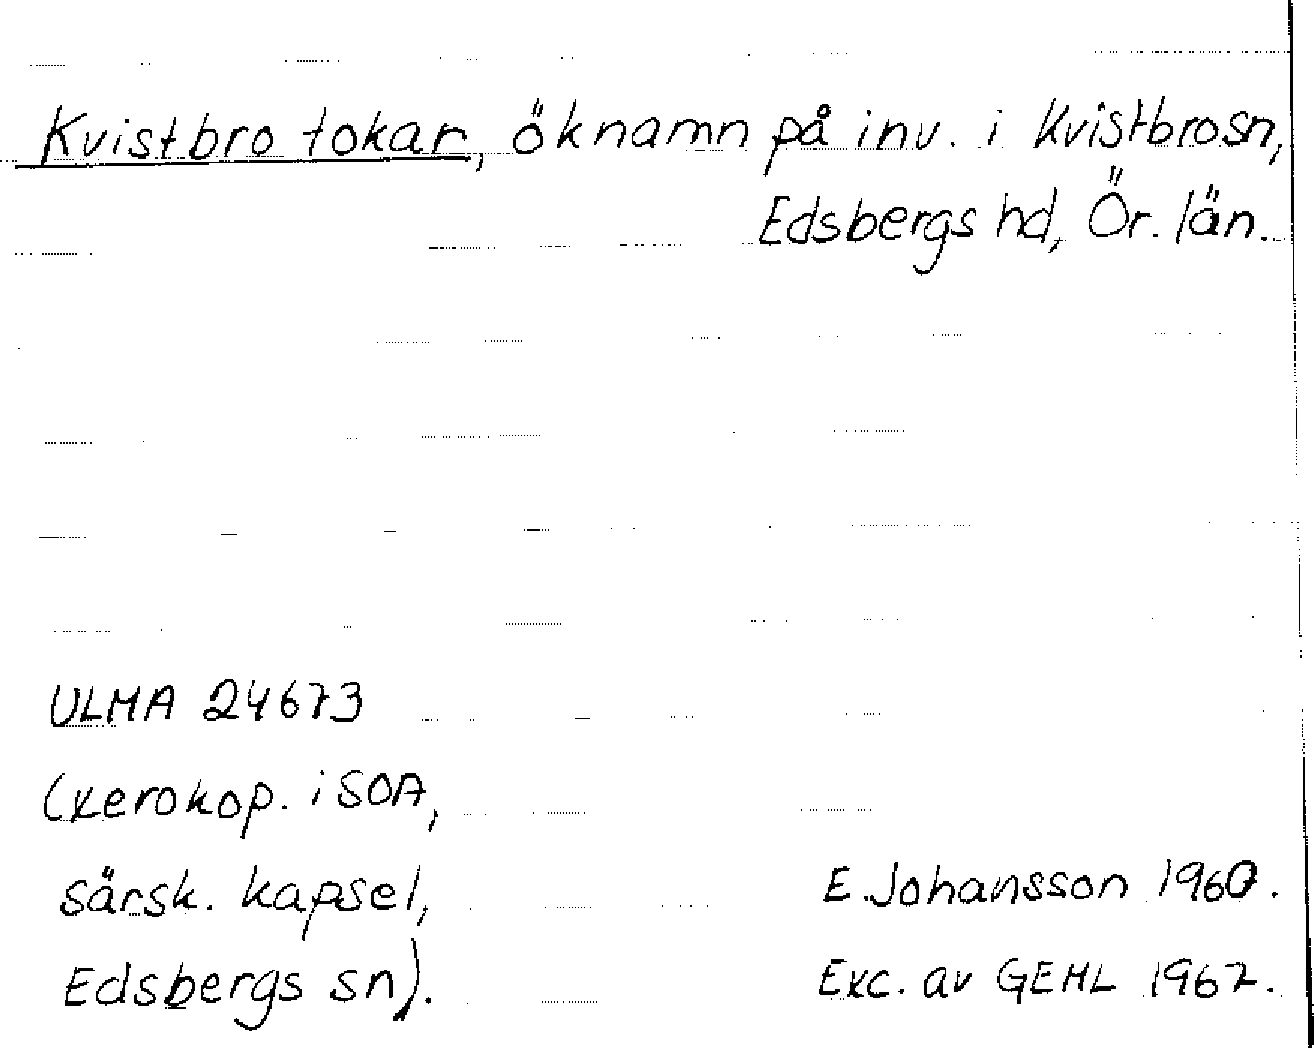 Kvistbro tokar, öknamn på inv. i Kvistbrosn,
Edsbergs hd, Ör. län.
ULMA 24673
(xerokop. i SOA,
särsk. kapsel,
Edsbergs sn).
E. Johansson 1960.
Exc. av GEHL 1967.